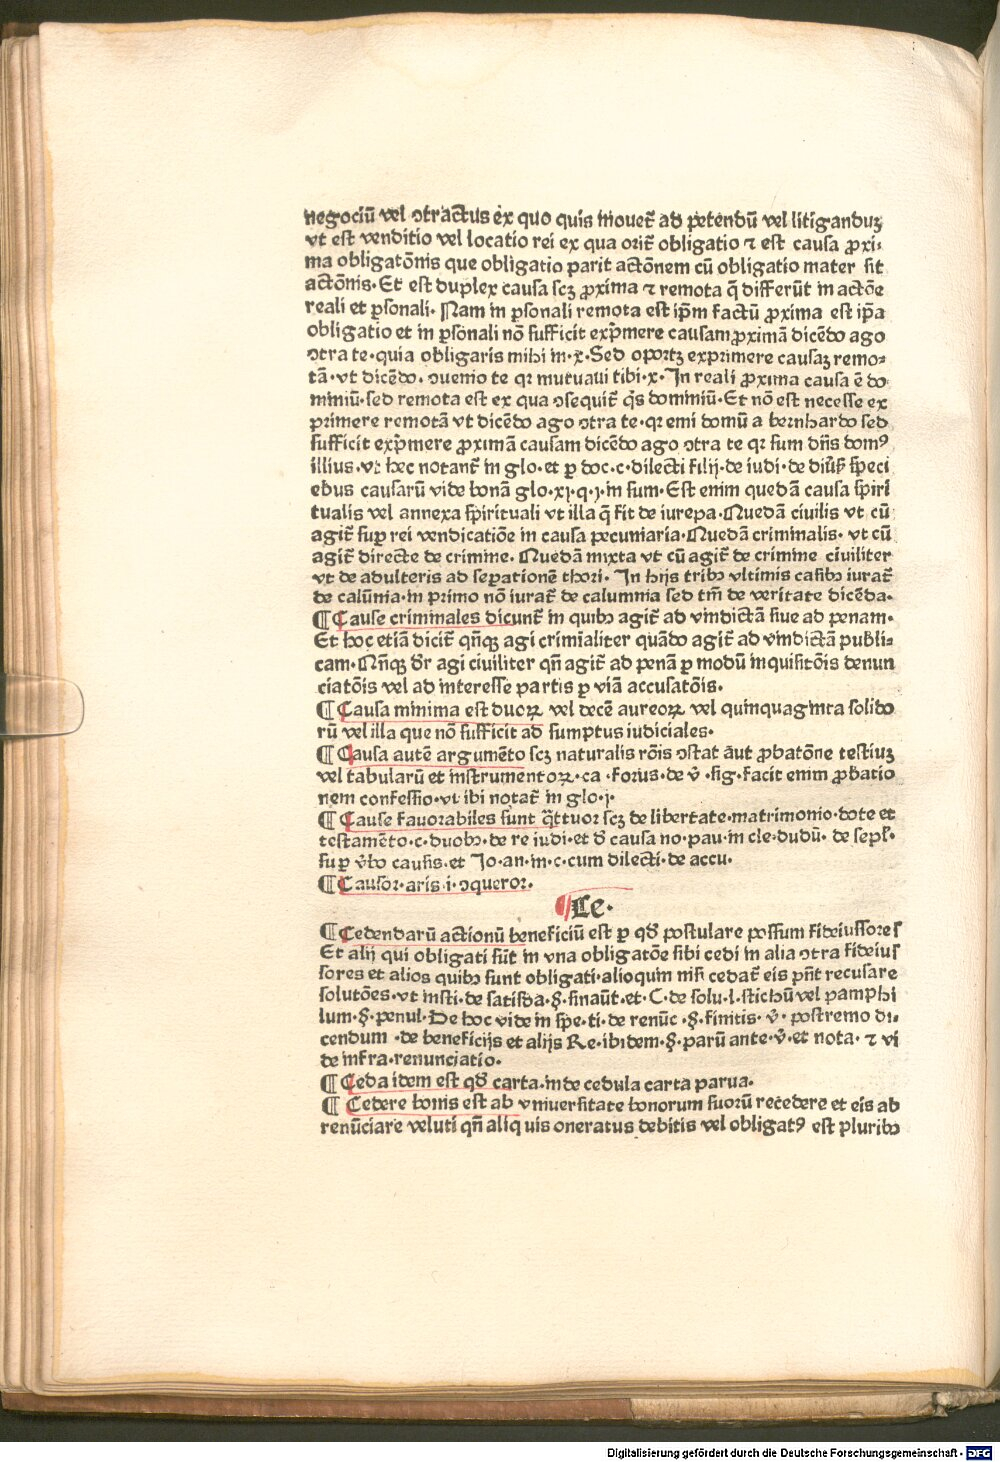 negociū vel ꝯtractus ex quo quis mouet̄ ad petendū vel litiganduꝫ
vt est venditio vel locatio rei ex qua orit̄ obligatio ⁊ est causa ꝓxi⸗
ma obligatōnis que obligatio parit actōnem cū obligatio mater sit
actōnis· Et est duplex causa scꝫ ꝓxima ⁊ remota q̄ differūt in actōe
reali et ꝑsonali· Nam in ꝑsonali remota est ip̄m factū ꝓxima est ip̄a
obligatio et in ꝑsōnali nō sufficit exp̄mere causam ꝓximā dicēdo ago
ꝯtra te·quia obligaris mihi in·x̄·Sed oportꝫ exprimere causaꝫ remo⸗
tā·vt dicēdo·ꝯuenio te qꝛ mutuaui tibi·x·In reali ꝓxima causa ē do
miniū·sed remota est ex qua ꝯsequit̄ q̄s dominiū·Et nō est necesse ex
primere remotā vt dicēdo ago ꝯtra te·qꝛ emi domū a bernhardo sed
sufficit exp̄mere ꝓximā causam dicēdo ago ꝯtra te qꝛ sum dn̄s domꝰ
illius·vt hec notant̄ in glo·et ꝑ doc·c·dilecti filij·de iudi·de diūs̄ speci
ebus causarū vide bonā glo·xj·q·j·in sum·Est enim quedā causa sp̄iri
tualis vel annexa sp̄irituali vt illa q̄ fit de iurepa·Quedā ciuilis vt cū
agit̄ suꝑ rei vendicatiōe in causa pecuniaria·Quedā criminalis· vt cū
agit̄ directe de crimine· Quedā mixta vt cū agit̄ de crimine ciuiliter
vt de adulteris ad seꝑationē thori· In hijs tribꝫ vltimis casibꝫ iurat̄
de calūnia·in primo nō iurat̄ de calumnia sed tm̄ de veritate dicēda·
¶ Cause criminales dicunt̄ in quibꝫ agit̄ ad vindictā siue ad penam·
Et hoc etiā dicit̄ qn̄qꝫ agi crimīaliter quādo agit̄ ad vindictā publi⸗
cam·Nn̄qꝫ dr̄ agi ciuiliter qn̄ agit̄ ad penā ꝑ modū inquisitōis denun
ciatōis vel ad interesse partis ꝑ viā accusatōis·
¶ Causa minima est duoꝝ vel decē aureoꝝ vel quinquaginta solido
rū vel illa que nō sufficit ad sumptus iudiciales·
¶ Causa autē argumēto scꝫ naturalis rōis ꝯstat aūt ꝓbatōne testiuꝫ
vel tabularū et instrumentoꝝ·ca·forus·de v̄·sig·facit enim ꝓbatio
nem confessio·vt ibi notat̄ in glo·j·
¶ Cause fauorabiles sunt q̄ttuor scꝫ de libertate·matrimonio·dote et
testamēto·c·duobꝫ·de re iudi·et d̄ causa no·pau·in cle·dudū· de sepl̄·
suꝑ v̄bo causis·et Jo·an·in·c·cum dilecti·de accu·
¶ Causor·aris·i·ꝯqueror·
¶ Ce·
¶ Cedendarū actionū beneficiū est ꝑ qd̄ postulare possum fideiussores
Et alij qui obligati sūt in vna obligatōe sibi cedi in alia ꝯtra fideius
sores et alios quibꝫ sunt obligati·alioquin nisi cedat̄ eis pn̄t recusare
solutōes·vt insti·de satisda·§·sinaūt·et·C·de solu·l·stichū vel pamphi
lum·§·penul·De hoc vide in spe·ti·de renūc·§·finitis·v̄·postremo di⸗
cendum·de beneficijs et alijs Re·ibidem·§·parū ante·v̄·et nota· ⁊ vi
de infra·renunciatio·
¶ Ceda idem est qd̄ carta·inde cedula carta parua·
¶ Cedere bonis est ab vniuersitate bonorum suorū recedere et eis ab
renūciare veluti qn̄ aliq uis oneratus debitis vel obligatꝰ est pluribꝫ
Digitalisierung gefördert durch die Deutsche Forschungsgemeinschaft - DFG